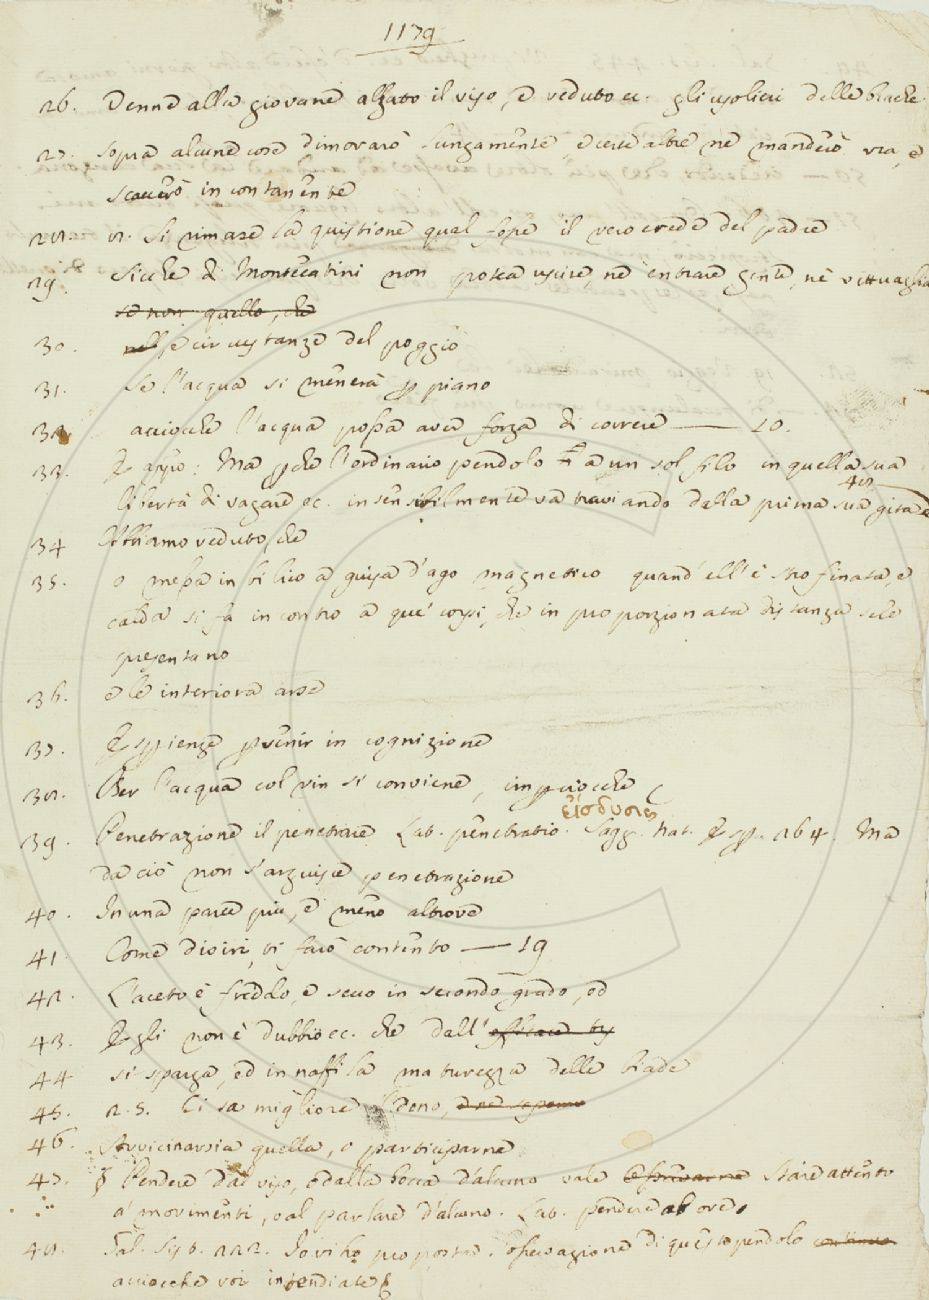 1179
26. Venne alla giovane alzato il viso, e veduto ec. gli usolieri delle brache
27. sopra alcune cose dimoraro lungamente e certe altre ne manderò via, e
scaccerò incontanente
28. 8. Si rimase la quistione qual fosse il vero erede del padre
29. Sicche di Montecatini non potea uscire, nè entrare gente, nè vittuaglia
se non quello, che
30. nelle circustanze del poggio
31. Se l'acqua si menerà p piano
32. acciocche l'acqua possa aver forza di correre — 10.
33. E appo: Ma pche l'ordinario pendolo a un sol filo in quella sua
libertà di vagare ec. insensibilmente va traviando dalla prima sua gita
48
34 Abbiamo veduto che
35. o messa in bilico a guisa d'ago magnetico quand'ell'è strofinata, e
calda si fa incontro a que' corpi, che in proporzionata distanza sele
presentano
36. e le interiora arse
37. Esppienze pvenir in cognizione
38. Ber l'acqua col vin si conviene, impciocche
εἴσδυσις
39. Penetrazione il penetrare Lat. penetratio. Sagg. nat. Esp. 264. Ma
da ciò non s'arguisce penetrazione
40. In una parte più, e meno altrove
41. Come diciri, vi farò contento — 19
42. L'aceto è freddo, e secco in secondo grado, ed
43. Egli non è dubbio ec. che dall'
44 si sparga, ed innaffi la maturezza delle biade
45. 2. 5. Ci sa migliore il dono,
46. Avvicinarsi a quella, o participarne
47. § Pendere dal viso, o dalla bocca d'alcuno vale Stare attento
a' movimenti, o al parlare d'alcuno. Lat. pendere ab ore.
48. Gal. Sist. 222. Io vi ho proposta l'osservazione di questo pendolo
acciocche voi intendiate